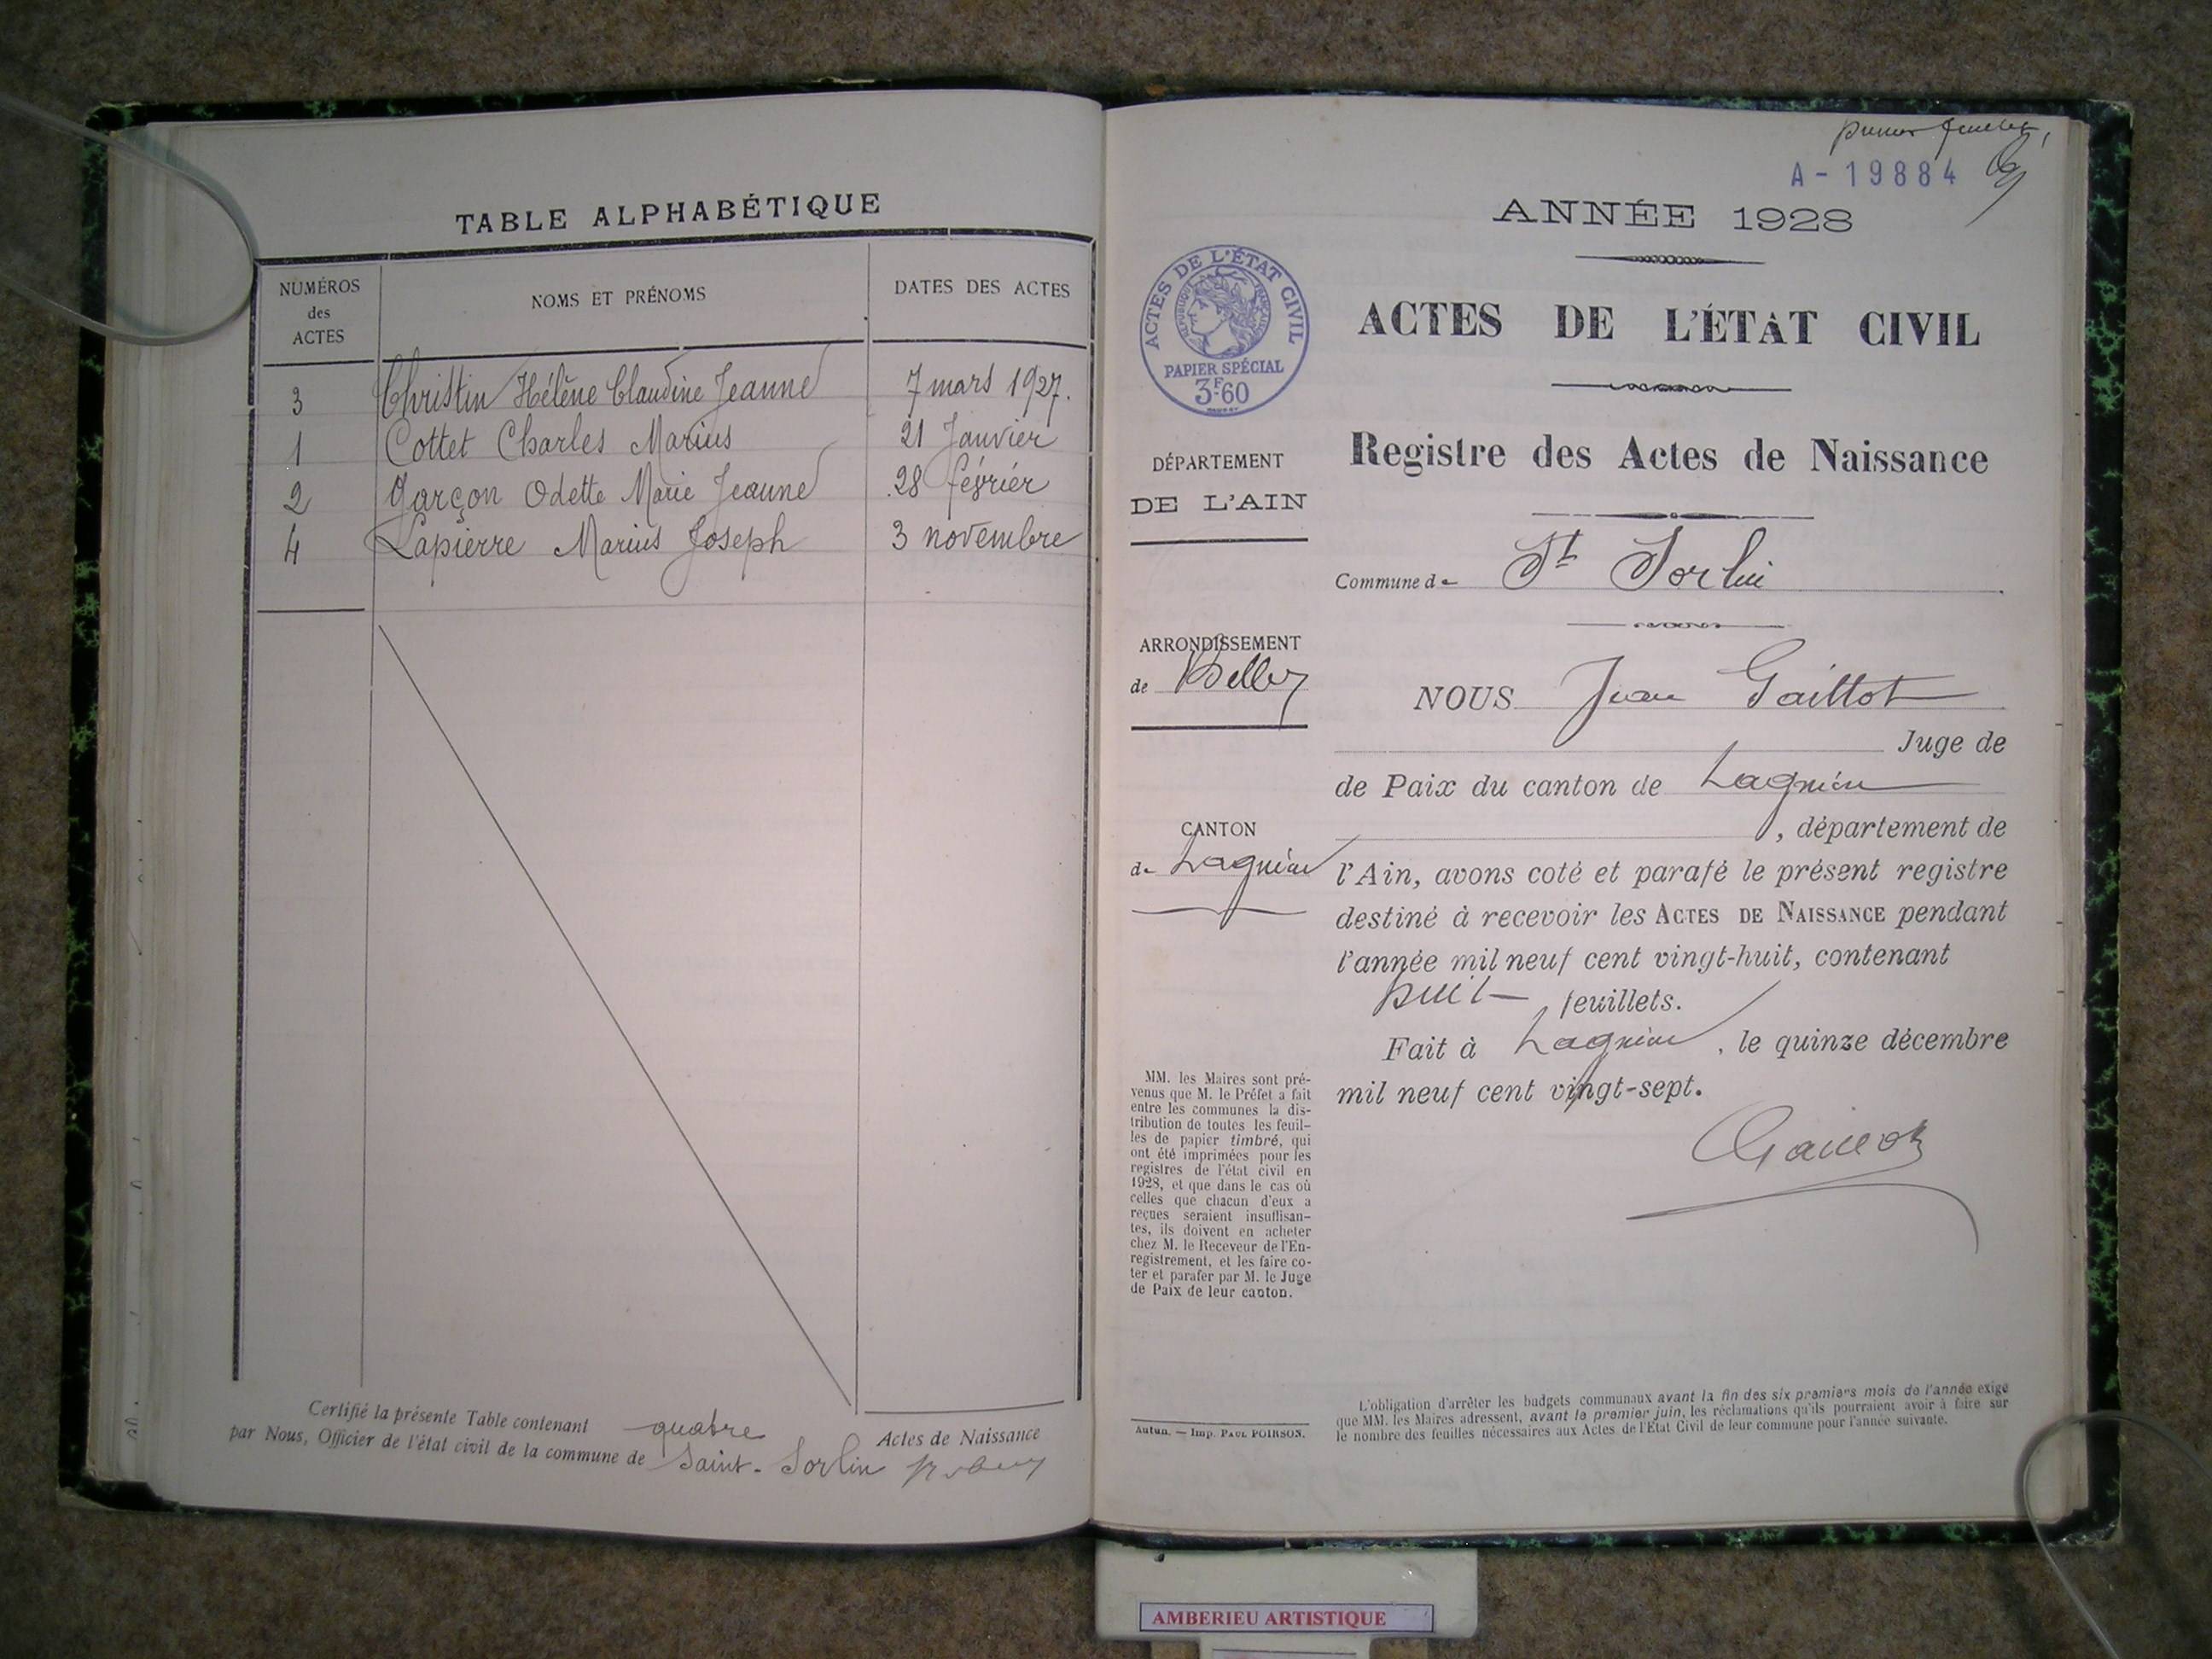 TABLE ALPHABÉTIQUE
NUMÉROS
des
ACTES
NOMS ET PRÉNOMS
DATES DES ACTES
3 Christin Hélène Claudine Jeanne 7 mars 1927.
1 Cottet Charles Marius 21 Janvier
2 Garçon Odette Marie Jeanne 28 février
4 Lapierre Marius Joseph 3 novembre
Certifié la présente Table contenant quatre Actes de Naissance
par Nous, Officier de l'état civil de la commune de Saint-Sorlin
premier feuillet
A-19884
ANNÉE 1928
ACTES DE L'ÉTAT CIVIL
RÉPUBLIQUE FRANÇAISE
PAPIER SPÉCIAL
3F60
ACTES DE L'ÉTAT CIVIL
Registre des Actes de Naissance
DÉPARTEMENT
DE L'AIN
Commune de St Sorlin
ARRONDISSEMENT
de Belley
CANTON
de Lagnieu
NOUS Jean Gaillot
Juge de
de Paix du canton de Lagnieu
, département de
l'Ain, avons coté et parafé le présent registre
destiné à recevoir les ACTES DE NAISSANCE pendant
l'année mil neuf cent vingt-huit, contenant
huit feuillets.
Fait à Lagnieu, le quinze décembre
mil neuf cent vingt-sept.
MM. les Maires sont pré-
venus que M. le Préfet a fait
entre les communes la dis-
tribution de toutes les feuil-
les de papier timbré, qui
ont été imprimées pour les
registres de l'état civil en
1928, et que dans le cas où
celles que chacun d'eux a
reçues seraient insuffisan-
tes, ils doivent en acheter
chez M. le Receveur de l'En-
registrement, et les faire co-
ter et parafer par M. le Juge
de Paix de leur canton.
Autun. — Imp. PAUL POIRSON.
L'obligation d'arrêter les budgets communaux avant la fin des six premiers mois de l'année exige
que MM. les Maires adressent, avant le premier juin, les réclamations qu'ils pourraient avoir à faire sur
le nombre des feuilles nécessaires aux Actes de l'État Civil de leur commune pour l'année suivante.
AMBERIEU ARTISTIQUE